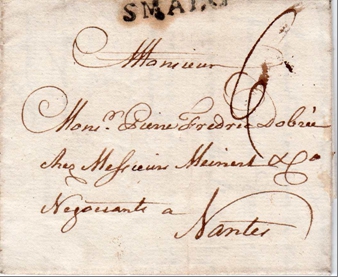 SMALO
6
Monsieur
Mons.r Pierre Fredric Dobrée
chez Messieurs Meinert & Co
Negociants a
Nantes